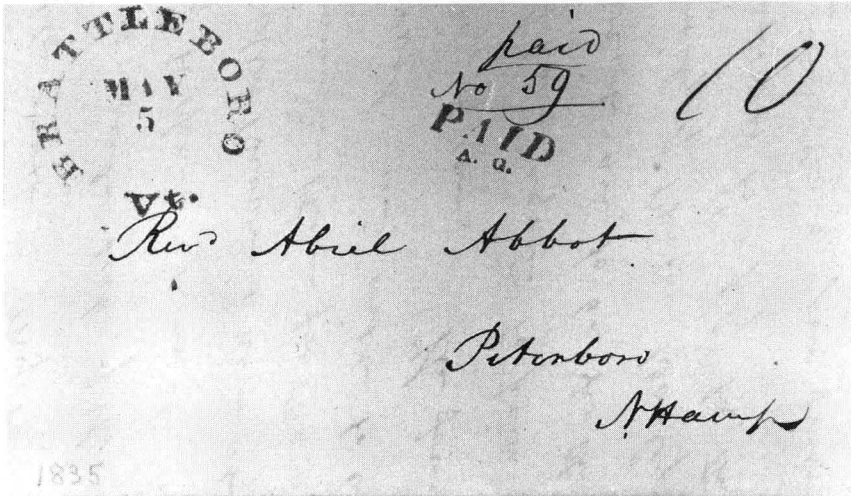 BRATTLEBORO
MAY
5
Vt.
paid
No 59
PAID
A. G.
10
Revd Abiel Abbot
Peterboro
N.Hamp
1835